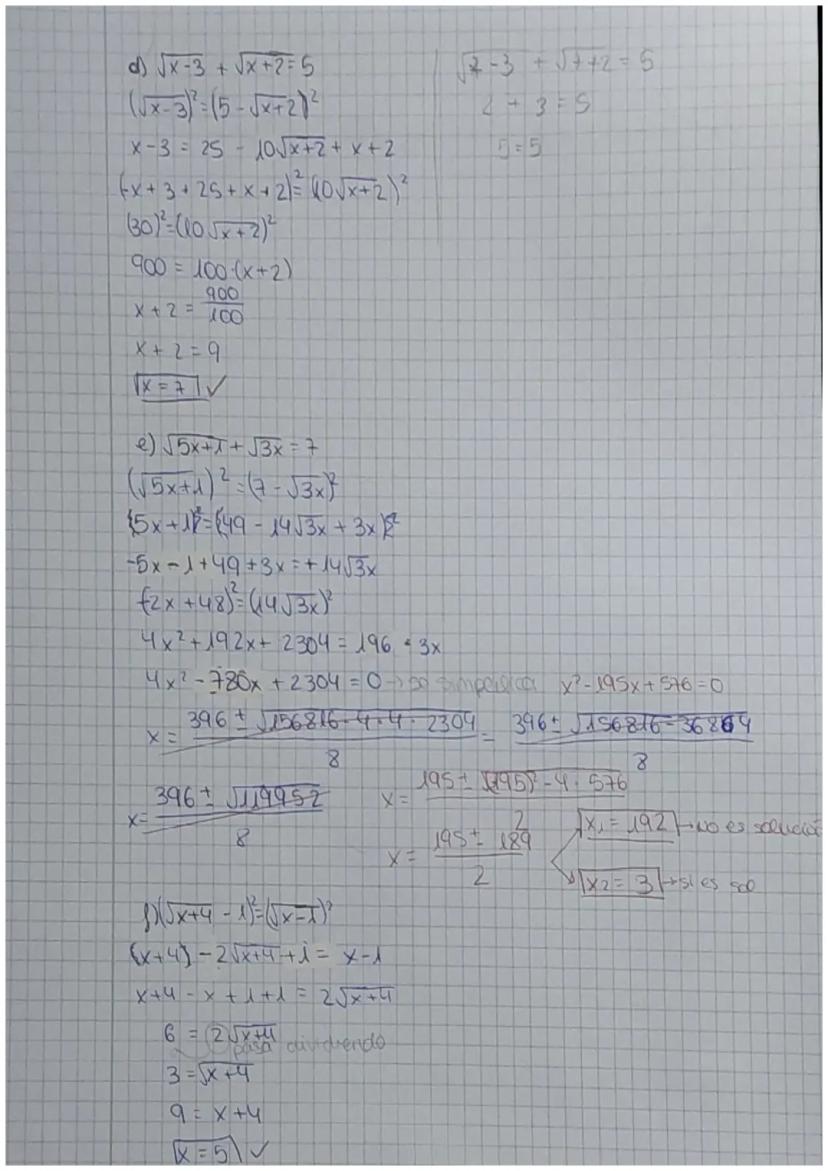 d) √x-3 + √x+2 = 5
(√x-3)² = (5 - √x+2)²
x-3 = 25 - 10√x+2 + x+2
(-x+3+25+x+2)² = (10√x+2)²
(30)² = (10√x+2)²
900 = 100·(x+2)
x+2 = 900/100
x+2 = 9
x = 7 ✓
√7-3 + √7+2 = 5
2 + 3 = 5
5 = 5
e) √5x+1 + √3x = 7
(√5x+1)² = (7 - √3x)²
(5x+1)² = (49 - 14√3x + 3x)²
-5x-1+49+3x = +14√3x
(-2x+48)² = (14√3x)²
4x²+192x+2304 = 196 · 3x
4x² - 780x + 2304 = 0 → se simplifica x² - 195x + 576 = 0
x = 396 ± √156816 - 4·4·2304 / 8 = 396 ± √156816 - 36864 / 8
x = 396 ± √119952 / 8
x = 195 ± √(195)² - 4·576 / 2
x = 195 ± 189 / 2
x₁ = 192 → no es solución
x₂ = 3 → si es sol
f) (√x+4 - 1)² = (√x-1)²
(x+4) - 2√x+4 + 1 = x-1
x+4-x+1+1 = 2√x+4
6 = 2√x+4
pasa dividiendo
3 = √x+4
9 = x+4
x = 5 ✓